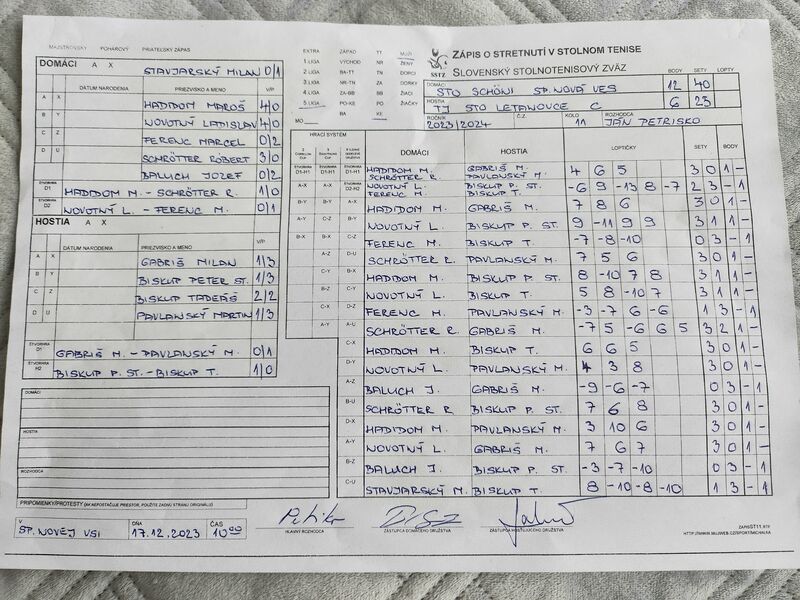 MAJSTROVSKÝ POHÁROVÝ PRIATEĽSKÝ ZÁPAS
EXTRA ZÁPAD TY MUŽI
1.LIGA VÝCHOD NR ŽENY
2.LIGA BA-TT TN DORCI
3.LIGA NR-TN ZA DORKY
4.LIGA ZA-BB BB ŽIACI
5.LIGA PO-KE PO ŽIAČKY
BA KE
MO
SSTZ
ZÁPIS O STRETNUTÍ V STOLNOM TENISE
SLOVENSKÝ STOLNOTENISOVÝ ZVÄZ
BODY SETY LOPTY
DOMÁCI STO SCHÖNI SP. NOVÁ VES 12 40
HOSTIA TJ STO LETANOVCE C 6 23
ROČNÍK 2023/2024 Č.Z. KOLO 11 ROZHODCA JÁN PETRISKO
DOMÁCI A X STAVJARSKÝ MILAN 0/1
DÁTUM NARODENIA PRIEZVISKO A MENO V/P
A X HADIDOM MAROŠ 4/0
B Y NOVOTNÝ LADISLAV 4/0
C Z FERENC MARCEL 0/2
D U SCHRÖTTER RÓBERT 3/0
BALUCH JOZEF 0/2
ŠTVORHRA D1 HADIDOM M. - SCHRÖTTER R. 1/0
ŠTVORHRA D2 NOVOTNÝ L. - FERENC M. 0/1
HOSTIA A X
DÁTUM NARODENIA PRIEZVISKO A MENO V/P
A X GABRIŠ MILAN 1/3
B Y BISKUP PETER ST. 1/3
C Z BISKUP TADEÁŠ 2/2
D U PAVLANSKÝ MARTIN 1/3
GABRIŠ M. - PAVLANSKÝ M. 0/1
ŠTVORHRA H2 BISKUP P. ST. - BISKUP T. 1/0
DOMÁCI
HOSTIA
ROZHODCA
PRIPOMIENKY/PROTESTY (AK NEPOSTAČUJE PRIESTOR, POUŽITE ZADNÚ STRANU ORIGINÁLU)
HRACÍ SYSTÉM
DOMÁCI HOSTIA LOPTIČKY SETY BODY
D1-H1 D1-H1 D1-H1 HADIDOM M. SCHRÖTTER R. GABRIŠ M. PAVLANSKÝ M. 4 6 5 3 0 1 -
A-X A-X D2-H2 NOVOTNÝ L. FERENC M. BISKUP P. ST. BISKUP T. -6 9 -13 8 -7 2 3 - 1
B-Y B-Y A-X HADIDOM M. GABRIŠ M. 7 8 6 3 0 1 -
A-Y C-Z B-Y NOVOTNÝ L. BISKUP P. ST. 9 -11 9 9 3 1 1 -
B-X B-X C-Z FERENC M. BISKUP T. -7 -8 -10 0 3 - 1
A-Z D-U SCHRÖTTER R. PAVLANSKÝ M. 7 5 6 3 0 1 -
C-Y B-X HADIDOM M. BISKUP P. ST. 8 -10 7 8 3 1 1 -
B-Z NOVOTNÝ L. BISKUP T. 5 8 -10 7 3 1 1 -
C-X FERENC M. PAVLANSKÝ M. -3 -7 6 -6 1 3 - 1
A-Y A-U SCHRÖTTER R. GABRIŠ M. -7 5 -6 6 5 3 2 1 -
C-X HADIDOM M. BISKUP T. 6 6 5 3 0 1 -
D-Y NOVOTNÝ L. PAVLANSKÝ M. 4 3 8 3 0 1 -
A-Z BALUCH J. GABRIŠ M. -9 -6 -7 0 3 - 1
B-U SCHRÖTTER R. BISKUP P. ST. 7 6 8 3 0 1 -
D-X HADIDOM M. PAVLANSKÝ M. 3 10 6 3 0 1 -
A-Y NOVOTNÝ L. GABRIŠ M. 7 6 7 3 0 1 -
B-Z BALUCH J. BISKUP P. ST. -3 -7 -10 0 3 - 1
C-U STAVJARSKÝ M. BISKUP T. 8 -10 -8 -10 1 3 - 1
V SP. NOVEJ VSI DŇA 17.12.2023 ČAS 10:00
HLAVNÝ ROZHODCA ZÁSTUPCA DOMÁCEHO DRUŽSTVA ZÁSTUPCA HOSŤUJÚCEHO DRUŽSTVA
ZÁPISST11.RTF
HTTP://WWW.MUJWEB.CZ/SPORT/MICHALKA